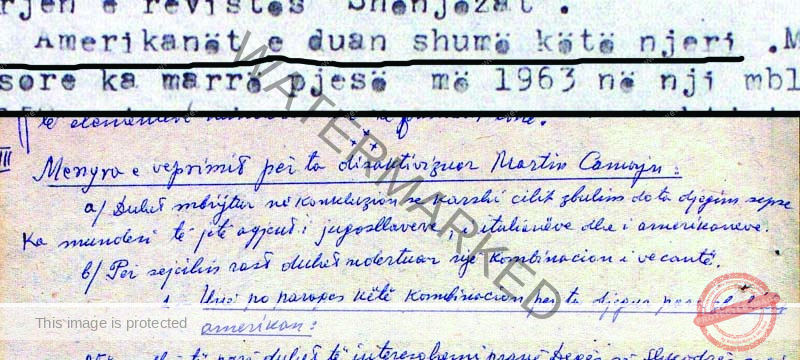 rjen e revistës "Shenjëzat".
Amerikanët e duan shumë këtë njeri .M
sore ka marrë pjesë më 1963 në nji mbl
të elementëve
III Menyra e veprimit për ta dizaktivizuar Martin Camajn:
a/ Duhet mbrijtur në konkluzion se karshi cilit zbulim do ta djegim sepse
Ka mundësi të jetë agjent i jugosllaveve, i italianëve dhe i amerikaneve.
b/ Për sejcilin rast duhet ndërtuar një kombinacion i veçantë.
1. Unë po paraqes këtë kombinacion per ta djegur para
amerikan:
të parë duhet të interesohemi pranë Degës
WATERMARKED
This image is protected